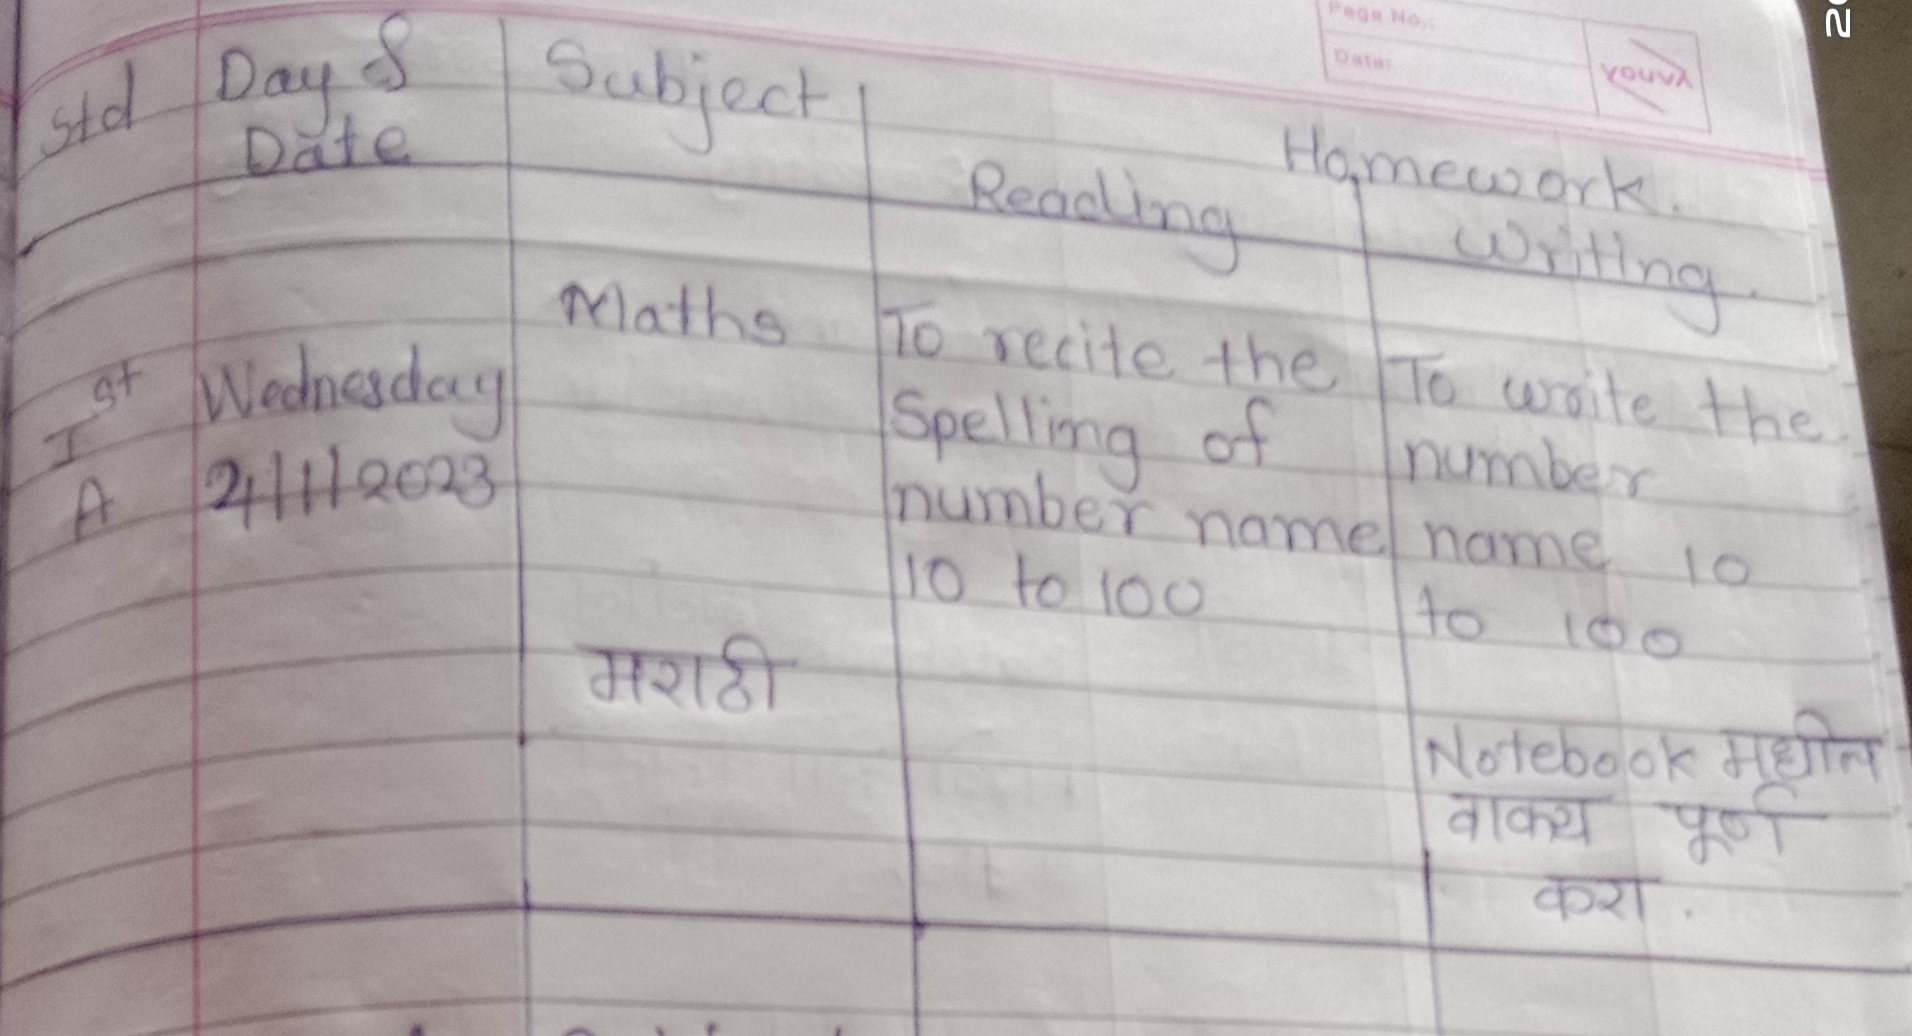 Page No.:
Date:
YOUVA
Std
Day &
Date
Subject
Homework.
Reading
Writing.
Ist
A
Wednesday
4/1/2023
Maths
To recite the
Spelling of
number name
10 to 100
To write the
number
name 10
to 100
मराठी
Notebook मधील
वाक्य पूर्ण
करा.